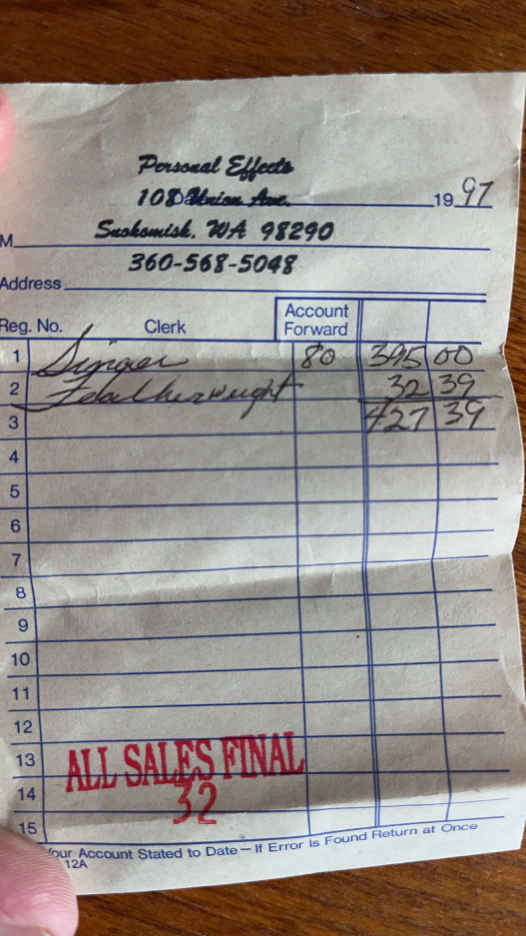 Personal Effects
108 Union Ave. 19 97
M Snohomish, WA 98290
360-568-5048
Address
Reg. No. Clerk Account Forward
1 Singer 80 395 00
2 Featherweight 32 39
3 427 39
4
5
6
7
8
9
10
11
12
13 ALL SALES FINAL
14 32
15
Your Account Stated to Date — If Error Is Found Return at Once
12A